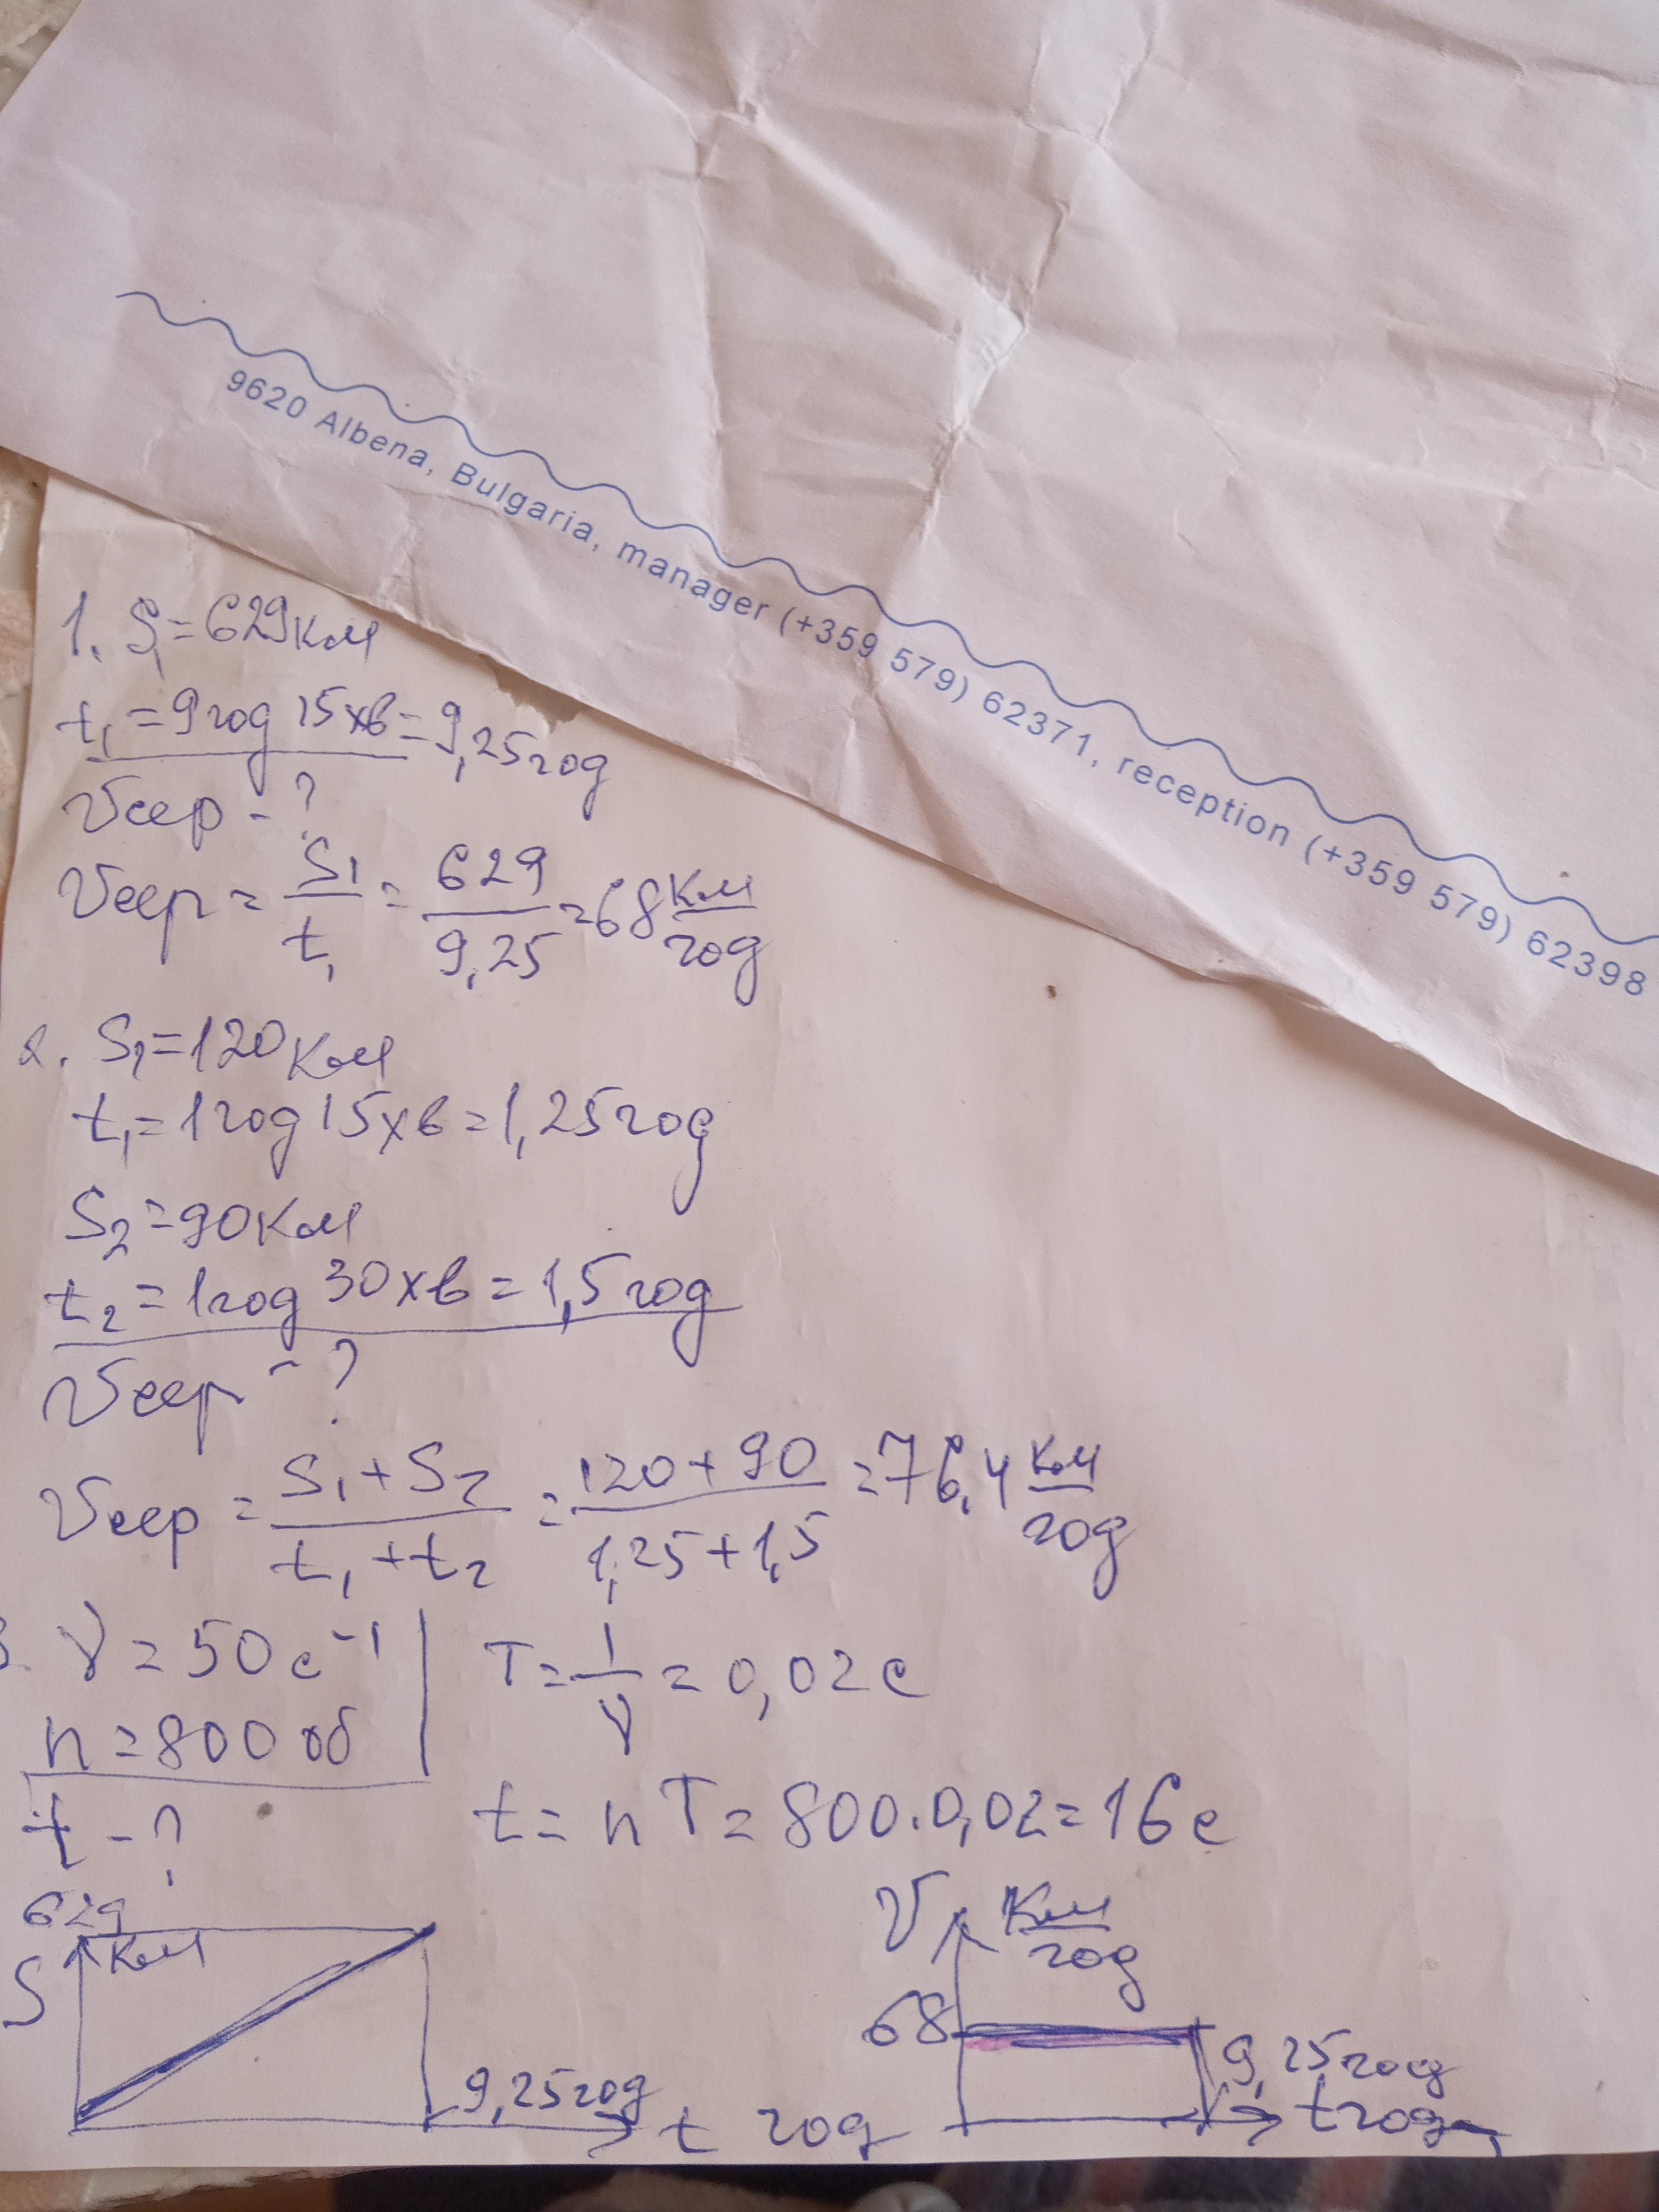 9620 Albena, Bulgaria, manager (+359 579) 62371, reception (+359 579) 62398
1. S₁=629км
t₁=9год 15хв=9,25год
Vсер - ?
Vсер = S₁/t₁ = 629/9,25 = 68 км/год
2. S₁=120км
t₁=1год 15хв=1,25год
S₂=90км
t₂=1год 30хв=1,5год
Vсер - ?
Vсер = (S₁+S₂)/(t₁+t₂) = (120+90)/(1,25+1,5) = 76,4 км/год
3. ν=50с⁻¹
T=1/ν=0,02с
n=800 об
t - ?
t=nT=800·0,02=16с
629
S км
9,25год
t год
V км/год
68
9,25год
t год